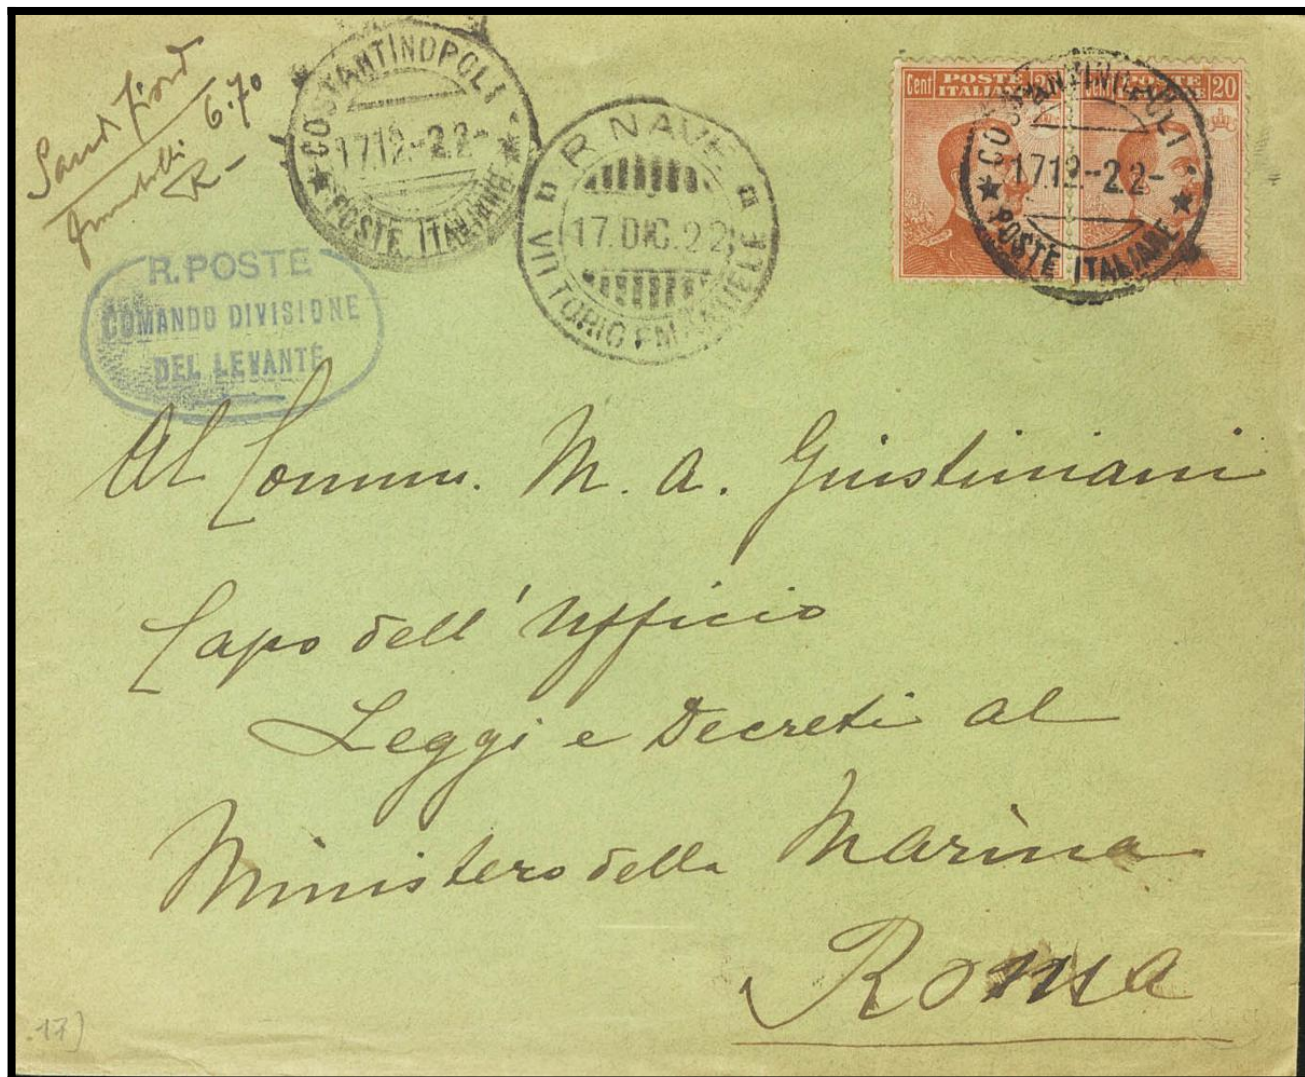 6.70
R-
COSTANTINOPOLI
17.12.-22-
POSTE ITALIANE
R. NAVE
17. DIC. 22
VITTORIO EMANUELE
Cent POSTE 20
ITALIANE
Cent POSTE 20
ITALIANE
COSTANTINOPOLI
17.12.-22-
POSTE ITALIANE
R. POSTE
COMANDO DIVISIONE
DEL LEVANTE
Al Comm. M. A. Giustiniani
Capo dell'Ufficio
Leggi e Decreti al
Ministero della Marina
Roma
17)